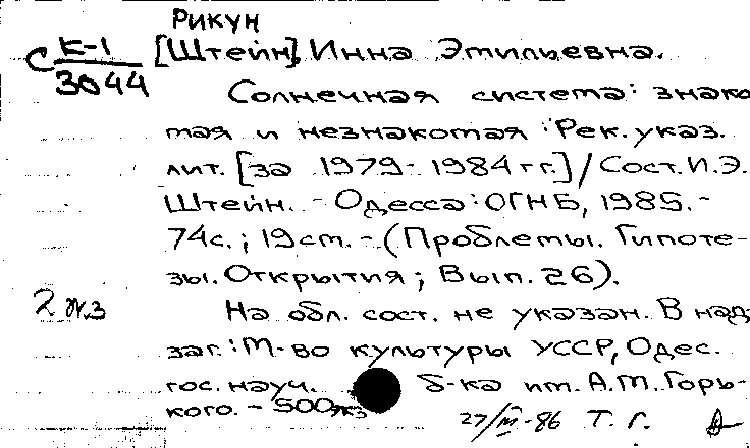 Рикун
С К-1
3044
[Штейн], Инна Эмильевна.
Солнечная система: знако
мая и незнакомая: Рек. указ.
лит. [за 1979-1984 гг.] / Сост. И.Э.
Штейн. - Одесса: ОГНБ, 1985. -
74с.; 19см. - (Проблемы. Гипоте-
зы. Открытия; Вып. 26).
2 эк3
На обл. сост. не указан. В над
заг.: М-во культуры УССР, Одес.
гос. науч. б-ка им. А.М. Горь-
кого. - 500экз
27/III-86 Т. Г.